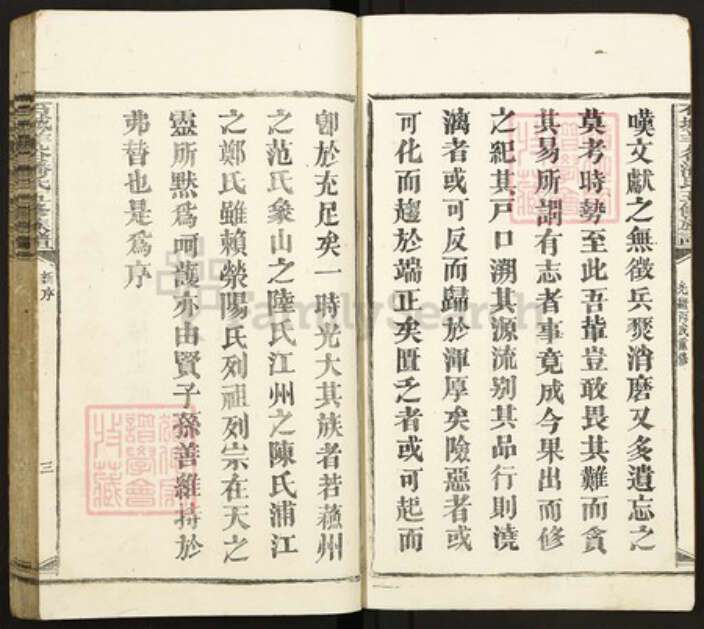 嘆文獻之無徵兵燹消磨又多遺忘之
莫考時勢至此吾輩豈敢畏其難而貪
其易所謂有志者事竟成今果出而修
之紀其戸口溯其源流别其品行則澆
漓者或可反而歸於渾厚矣險惡者或
可化而趨於端正矣匱乏者或可起而
光緒丙戌重修
卽於充足矣一時光大其族者若蘇州
之范氏象山之陸氏江州之陳氏浦江
之鄭氏雖賴滎陽氏列祖列宗在天之
靈所默為呵護亦由賢子孫善維持於
弗替也是為序
新序
三
FamilySearch